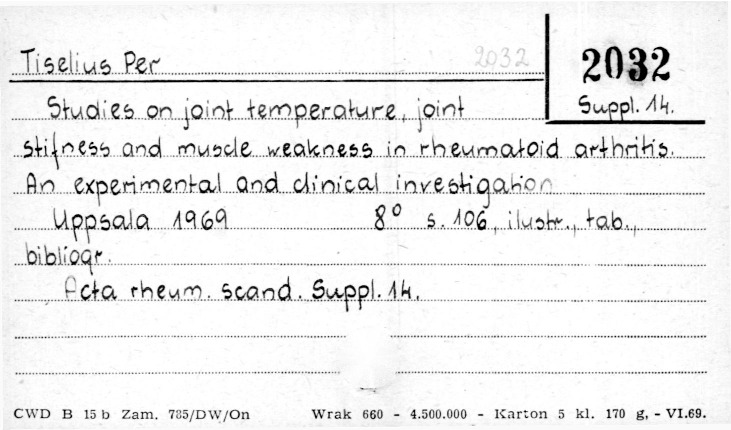 Tiselius Per 2032
2032
Suppl. 14.
Studies on joint temperature, joint
stifness and muscle weakness in rheumatoid arthritis.
An experimental and clinical investigation
Uppsala 1969 8° s. 106, ilustr., tab.,
bibliogr.
Acta rheum. scand. Suppl. 14.
CWD B 15 b Zam. 785/DW/On Wrak 660 - 4.500.000 - Karton 5 kl. 170 g, - VI.69.